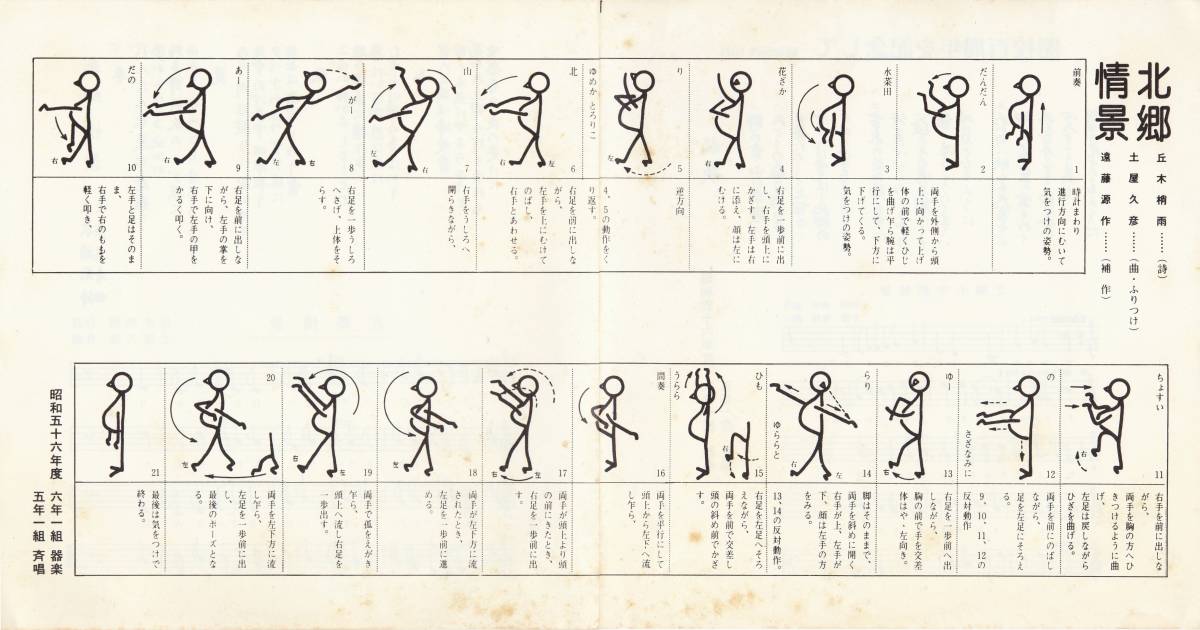 北郷
情景
丘木柄雨……(詩)
土屋久彦……(曲・ふりつけ)
遠藤源作……(補作)
前奏
1
時計まわり
進行方向にむいて
気をつけの姿勢。
だんだん
2
両手を外側から頭
上に向かって上げ
体の前で軽くひじ
を曲げ乍ら腕は平
行にして、下方に
下げてくる。
気をつけの姿勢。
水菜田
3
花ざか
4
右足を一歩前に出
し、右手を頭上に
かざす。左手は右
に添え、顔は左に
むける。
り
5
左
逆方向
ゆめか とろりこ
4、5の動作をく
り返す。
北
6
右
右足を前に出しな
がら、
左手を上にむけて
のばし、
右手とあわせる。
山
7
左
右手をうしろへ
開らきながら、
がー
8
左
右
右足を一歩うしろ
へさげ、上体をそ
らす。
あー
9
右
右足を前に出しな
がら、左手の掌を
下に向け、
右手で左手の甲を
かるく叩く。
だの
10
右
左手と足はそのま
ま、
右手で右のももを
軽く叩き、
ちょすい
11
右
右手を前に出しな
がら、
両手を胸の方へひ
きつけるように曲
げ、
左足は戻しながら
ひざを曲げる。
の
12
両手を前にのばし
ながら、
足を左足にそろえ
る。
さざなみに
9、10、11、12の
反対動作
ゆー
13
右
右足を一歩前へ出
しながら、
胸の前で手を交差
体はや、左向き。
らり
14
右
左
脚はそのままで、
両手を斜めに開く
右手が上、左手が
下、顔は左手の方
をみる。
ゆららと
13、14の反対動作。
ひも
15
右
右足を左足へそろ
えながら、
両手を前で交差し
頭の斜め前でかざ
す。
うらら
間奏
16
両手を平行にして
頭上から左下へ流
し乍ら、
17
右
左
両手が頭上より頭
の前にきたとき、
右足を一歩前に出
す。
18
左
両手が左下方に流
されたとき、
左足を一歩前に進
める。
19
右
左
両手で孤をえがき
乍ら、
頭上へ流し右足を
一歩出す。
20
左
両手を左下方に流
し乍ら、
左足を一歩前に出
し、
最後のポーズとな
る。
21
最後は気をつけで
終わる。
昭和五十六年度
六年一組 器楽
五年一組 斉唱